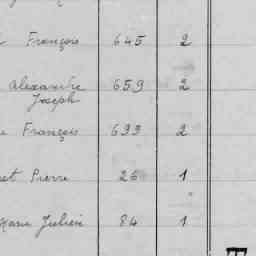 François 645 2
alexandre 659 2
Joseph
François 699 2
Pierre 26 1
Julien 84 1